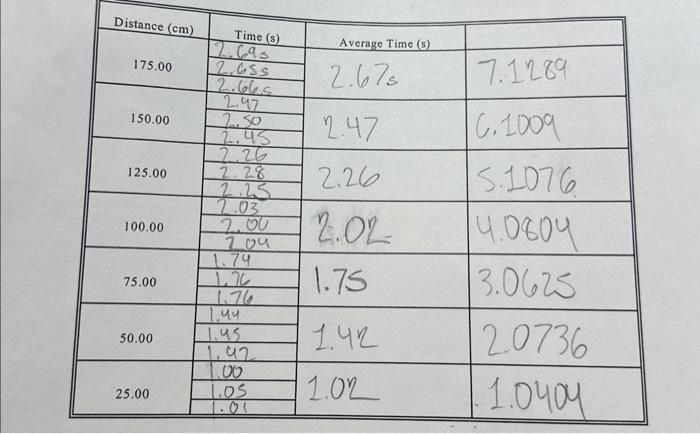 Distance (cm) Time (s) Average Time (s)
175.00 2.69s 2.67s 7.1289
2.65s
2.66s
150.00 2.47 2.47 6.1009
2.50
2.45
125.00 2.26 2.26 5.1076
2.28
2.25
100.00 2.03 2.02 4.0804
2.00
2.04
75.00 1.74 1.75 3.0625
1.76
1.76
50.00 1.44 1.42 2.0736
1.45
1.42
25.00 1.00 1.02 1.0404
1.05
1.01